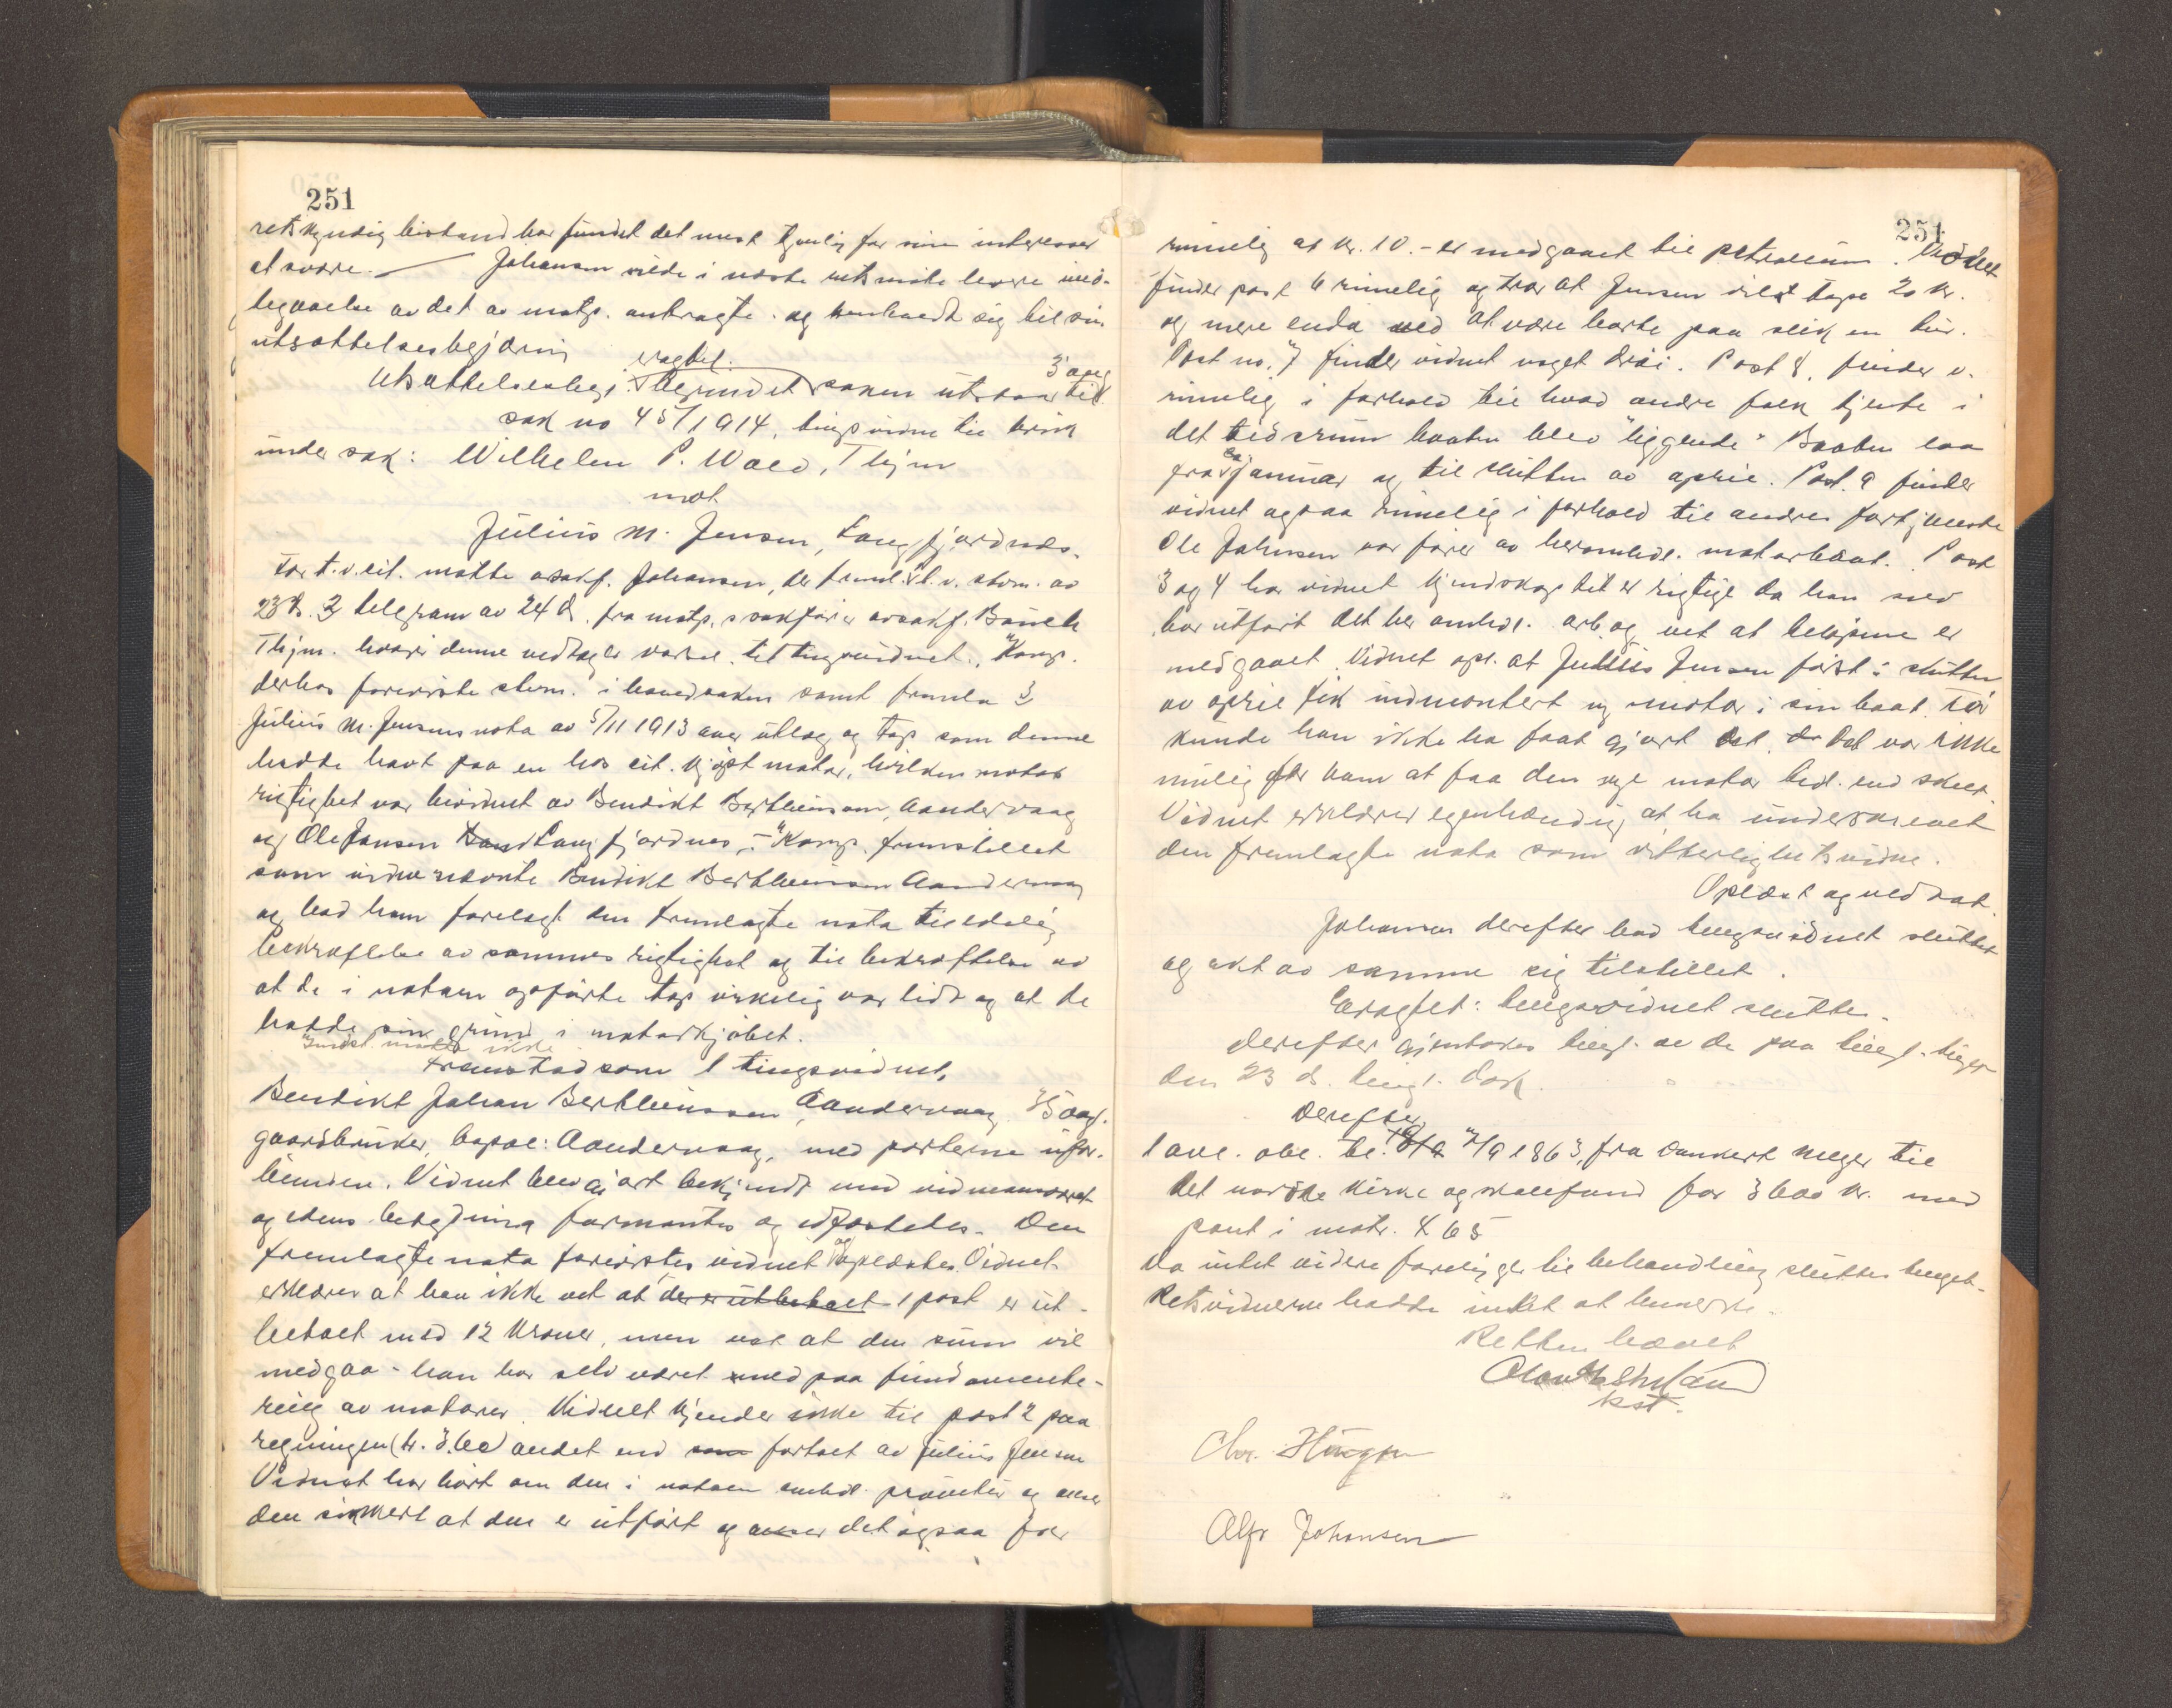 251
retskyndig bistand har fundet det mest tjenlig for sine interesser
at svare. — Johansen vilde i næste retsmøte levere imø-
tegaaelse av det av motp. anbragte og henholdt sig til sin
utsættelsesbegjæring
eragtet: 3 aug
Utsættelsesbegj. begrundet saken utstaar til
sak no 45/1914, tingsvidne til bruk
under sak: Wilhelm P. Wold, Thjm
mot
Julius M. Jensen, Langfjordnes.
For t.v.cit. møtte osakf. Johansen, der freml. t.v. stevn. av
23 ds. 2 telegram av 24 ds. fra motp.s sakfører osakf. Bauck
Thjm. hvori denne vedtager varsel til tingsvidnet. Komp.
derhos foreviste stevn. i hovedsaken samt fremla
Julius M. Jensens nota av 5/11 1913 over utlæg og tap som denne
hadde havt paa en hos cit. kjøpt motor, hvilken notas
rigtighet var bevidnet av Bendikt Berthinsen, Aandervaag
og Ole Jansen Langfjordnes, – Komp. fremstillet
som vidne nævnte Bendikt Berthinsen Aandervaag
og bad ham forelagt den fremlagte nota til edelig
bekræftelse av sammes rigtighet og til bekræftelse av
at de i notaen opførte tap virkelig var lidt og at de
hadde sin grund i motorkjøbet.
Indst. møtte ikke
Fremstod som 1 tingsvidne,
Bendikt Johan Berthinssen, Aandervaag 35 aar g.
gaardbruker, bopæl: Aandervaag, med parterne ufor-
bunden. Vidnet blev gjort bekjendt med vidneansvaret
og edens betydning formantes og edfæstedes. Den
fremlagte nota forevistes vidnet og oplæstes. Vidnet
erklærer at han ikke vet at der er utbetalt 1 post er ut-
betalt med 12 kroner, men vet at den sum vil
medgaa – han har selv været med paa fundamente-
ring av motorer. Vidnet kjender ikke til post 2 paa
regningen (kr. 3.60) andet end fortalt av Julius Jensen
Vidnet har hørt om den i notaen omhdl. prøvetur og anser
den sikkert at den er utført og anser det ogsaa for
251
rimelig at kr. 10.- er medgaaet til petroleum. Vidnet
finder post 6 rimelig og tror at Jensen vilde tape 20 kr.
og mere enda ved at være borte paa slik en tur.
Post no. 7 finder vidnet noget drøi. Post 8. finder v.
rimelig i forhold til hvad andre folk tjente i
det tidsrum baaten blev "liggende" Baaten laa
fra ca januar og til slutten av april. Post 9 finder
vidnet ogsaa rimelig i forhold til andres fortjeneste
Ole Johnsen var fører av heromhdl. motorbaat. Post
3 og 4 har vidnet kjendskap til er rigtige da han selv
har utført det her omhdl. arb. og vet at beløpene er
medgaaet. Vidnet opl. at Julius Jensen først i slutten
av april fik indmontert ny motor i sin baat. Før
kunde han ikke ha faat gjort det. Det var ikke
mulig for ham at faa den nye motor tidl. end skeet.
Vidnet erklærer egenhændig at ha underskrevet
den fremlagte nota som vitterlighetsvidne.
Oplæst og vedtat.
Johansen derefter bad tingsvidnet sluttet
og akt av samme sig tilstillet.
Eragtet: tingsvidnet sluttes.
Derefter gjentokes tingl. av de paa tingl. tinget
den 23 ds. tingl. dok.
Derefter
1 avl. obl. tl. 7/9 1863, fra Dankert Meyer til
det norske kirke og skolefund for 3600 kr. med
pant i matr. 465
Da intet videre forelyges til behandling sluttes tinget.
Retsvidnerne hadde intet at bemerke.
Retten hævet
kst.
Chr.
Alfr Johansen